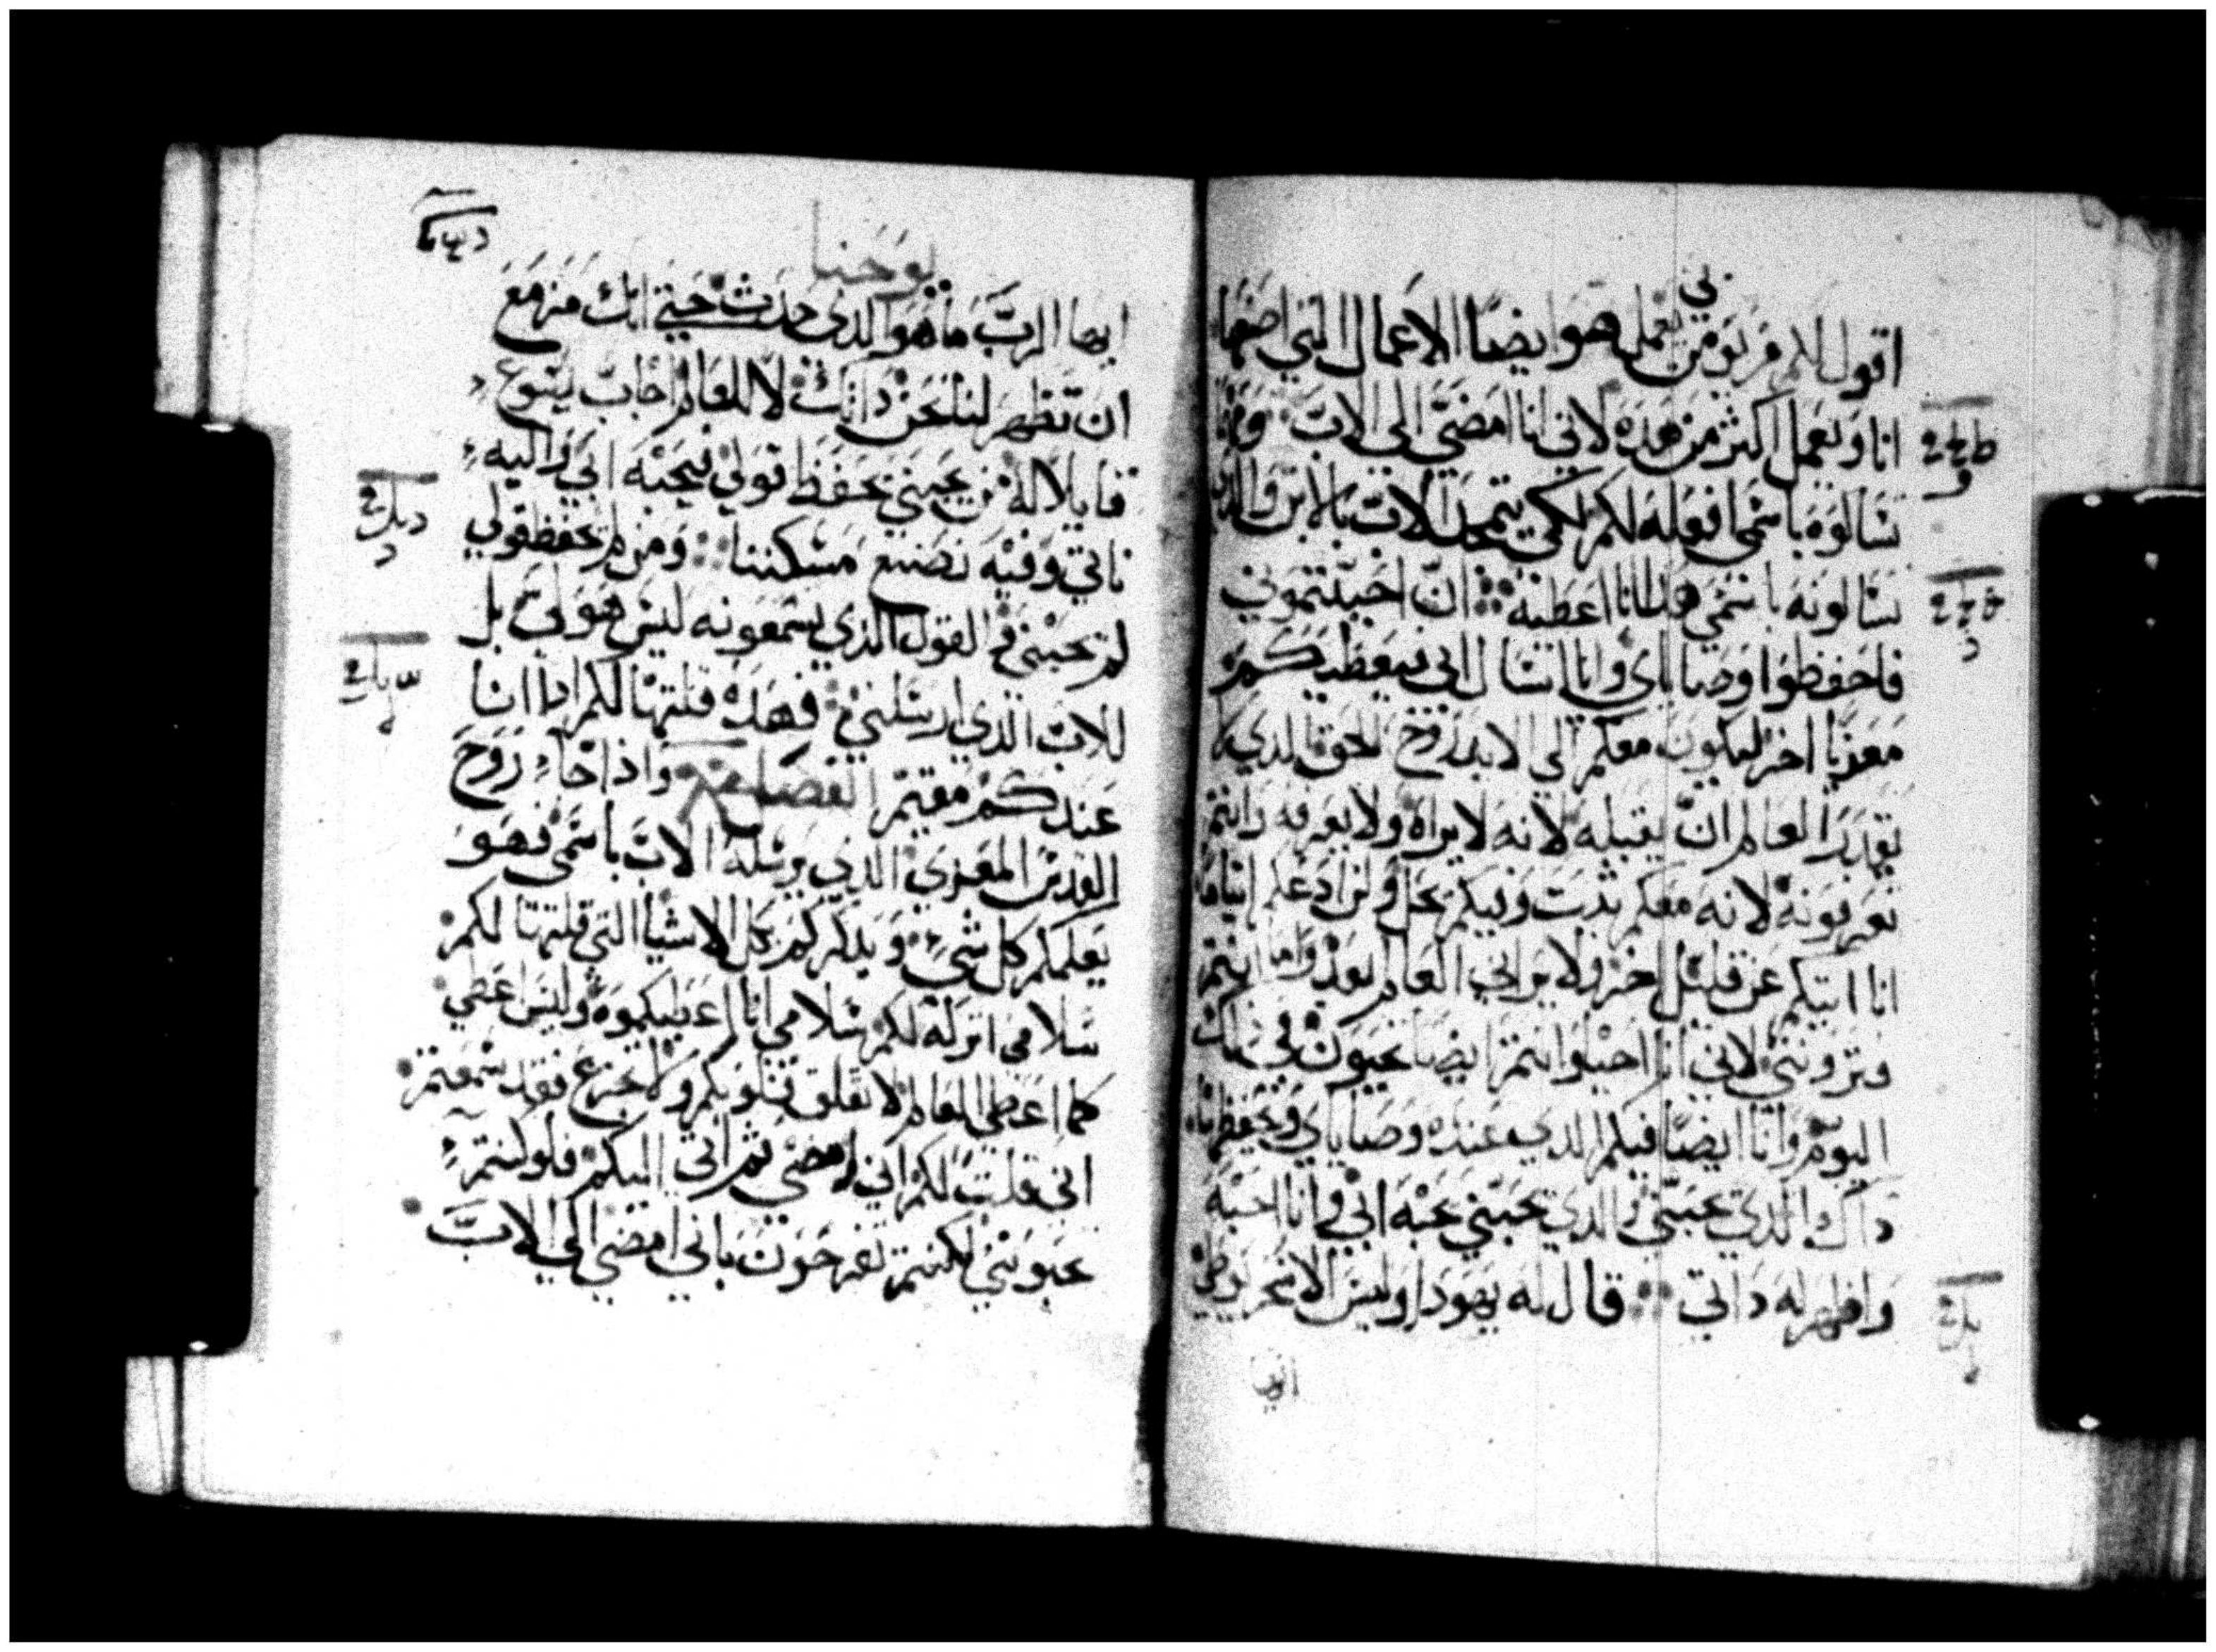 بي
اقول لكم من يومن يعمل هو ايضا الاعمال التي اصنعها
انا ويعمل اكثر من هده لاني انا امضي الي الاب
تسالوه باسمي افعله لكم لكي يتمجد الاب بالابن والدي
تسالونه باسمي انا اعطيه ان احببتموني
فاحفظوا وصاياي وانا اسال ابي فيعطيكم
معزيا اخر ليكون معكم الي الابد روح الحق الدي لا
يقدر العالم ان يقبله لانه لا يراه ولا يعرفه وانتم
تعرفونه لانه معكم يثبت وفيكم يحل ولن ادعكم ايتاما
انا اتيكم عن قليل اخر ولا يراني العالم بعد واما انتم
وتروني لاني انا احيا وانتم ايضا تحيون في ذلك
اليوم وانا ايضا فيكم الدي عنده وصاياي ويحفظها
داك الدي يحبني والدي يحبني يحبه ابي وانا احبه
واظهر له داتي قال له يهودا وليس الاسخريوطي
ايها
يوحنا
ايها الرب ما هو الدي حدث حتي انك مزمع
ان تظهر لنا نحن داتك لا للعالم اجاب يسوع
قايلا له من يحبني يحفظ قولي فيحبه ابي واليه
ناتي وفيه نصنع مسكننا ومن لم يحفظ قولي
لم يحبني والقول الذي تسمعونه ليس هو لي بل
للاب الدي ارسلني فهده قلتها لكم ادا انا
عندكم مقيم الفصل واذا جاء روح
القدس المعزي الدي يرسله الاب باسمي فهو
يعلمكم كل شي ويدكركم كل الاشيا التي قلتها لكم
سلامي اتركه لكم سلامي انا اعطيكموه وليس اعطي
كما اعطي العالم لا تقلق قلوبكم ولا تجزع فقد سمعتم
اني قلت لكم اني امضي ثم اتي اليكم فلو كنتم
تحبونني لكنتم تفرحون باني امضي الي الاب